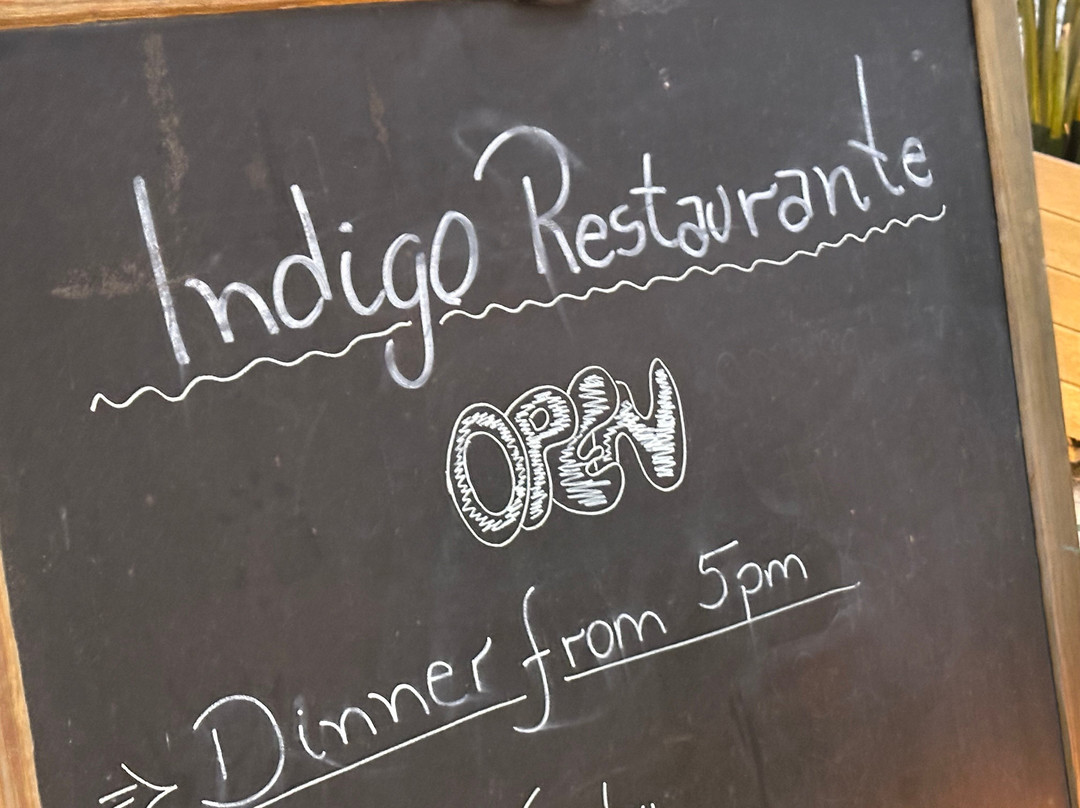 Indigo Restaurante
OPEN
Dinner from 5pm